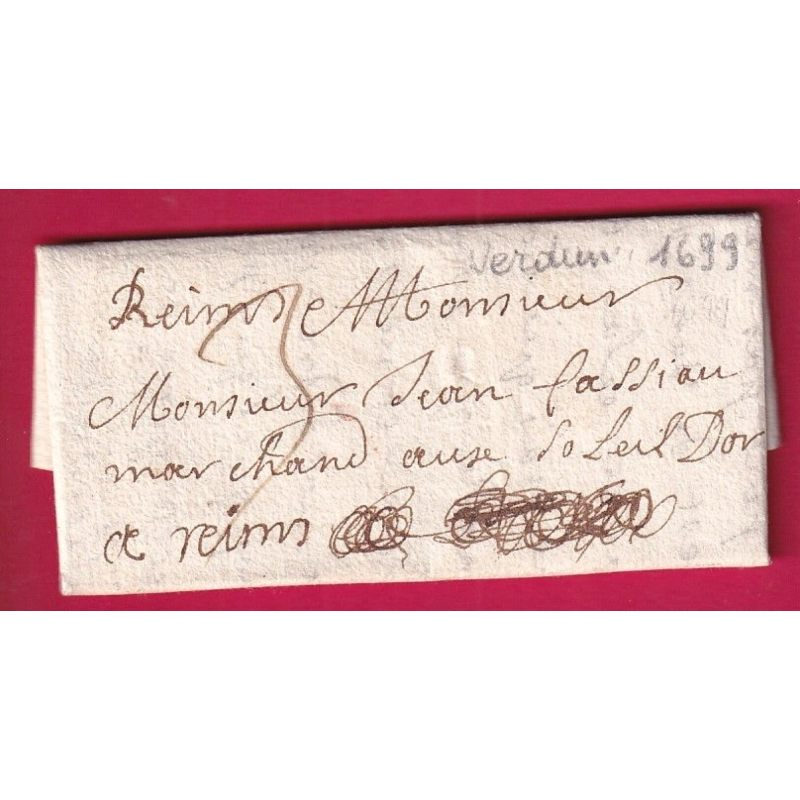 Verdun 1699
Reims 3 Monsieur
Monsieur Jean fassiau
marchand ause SoLeil Dor
a reims